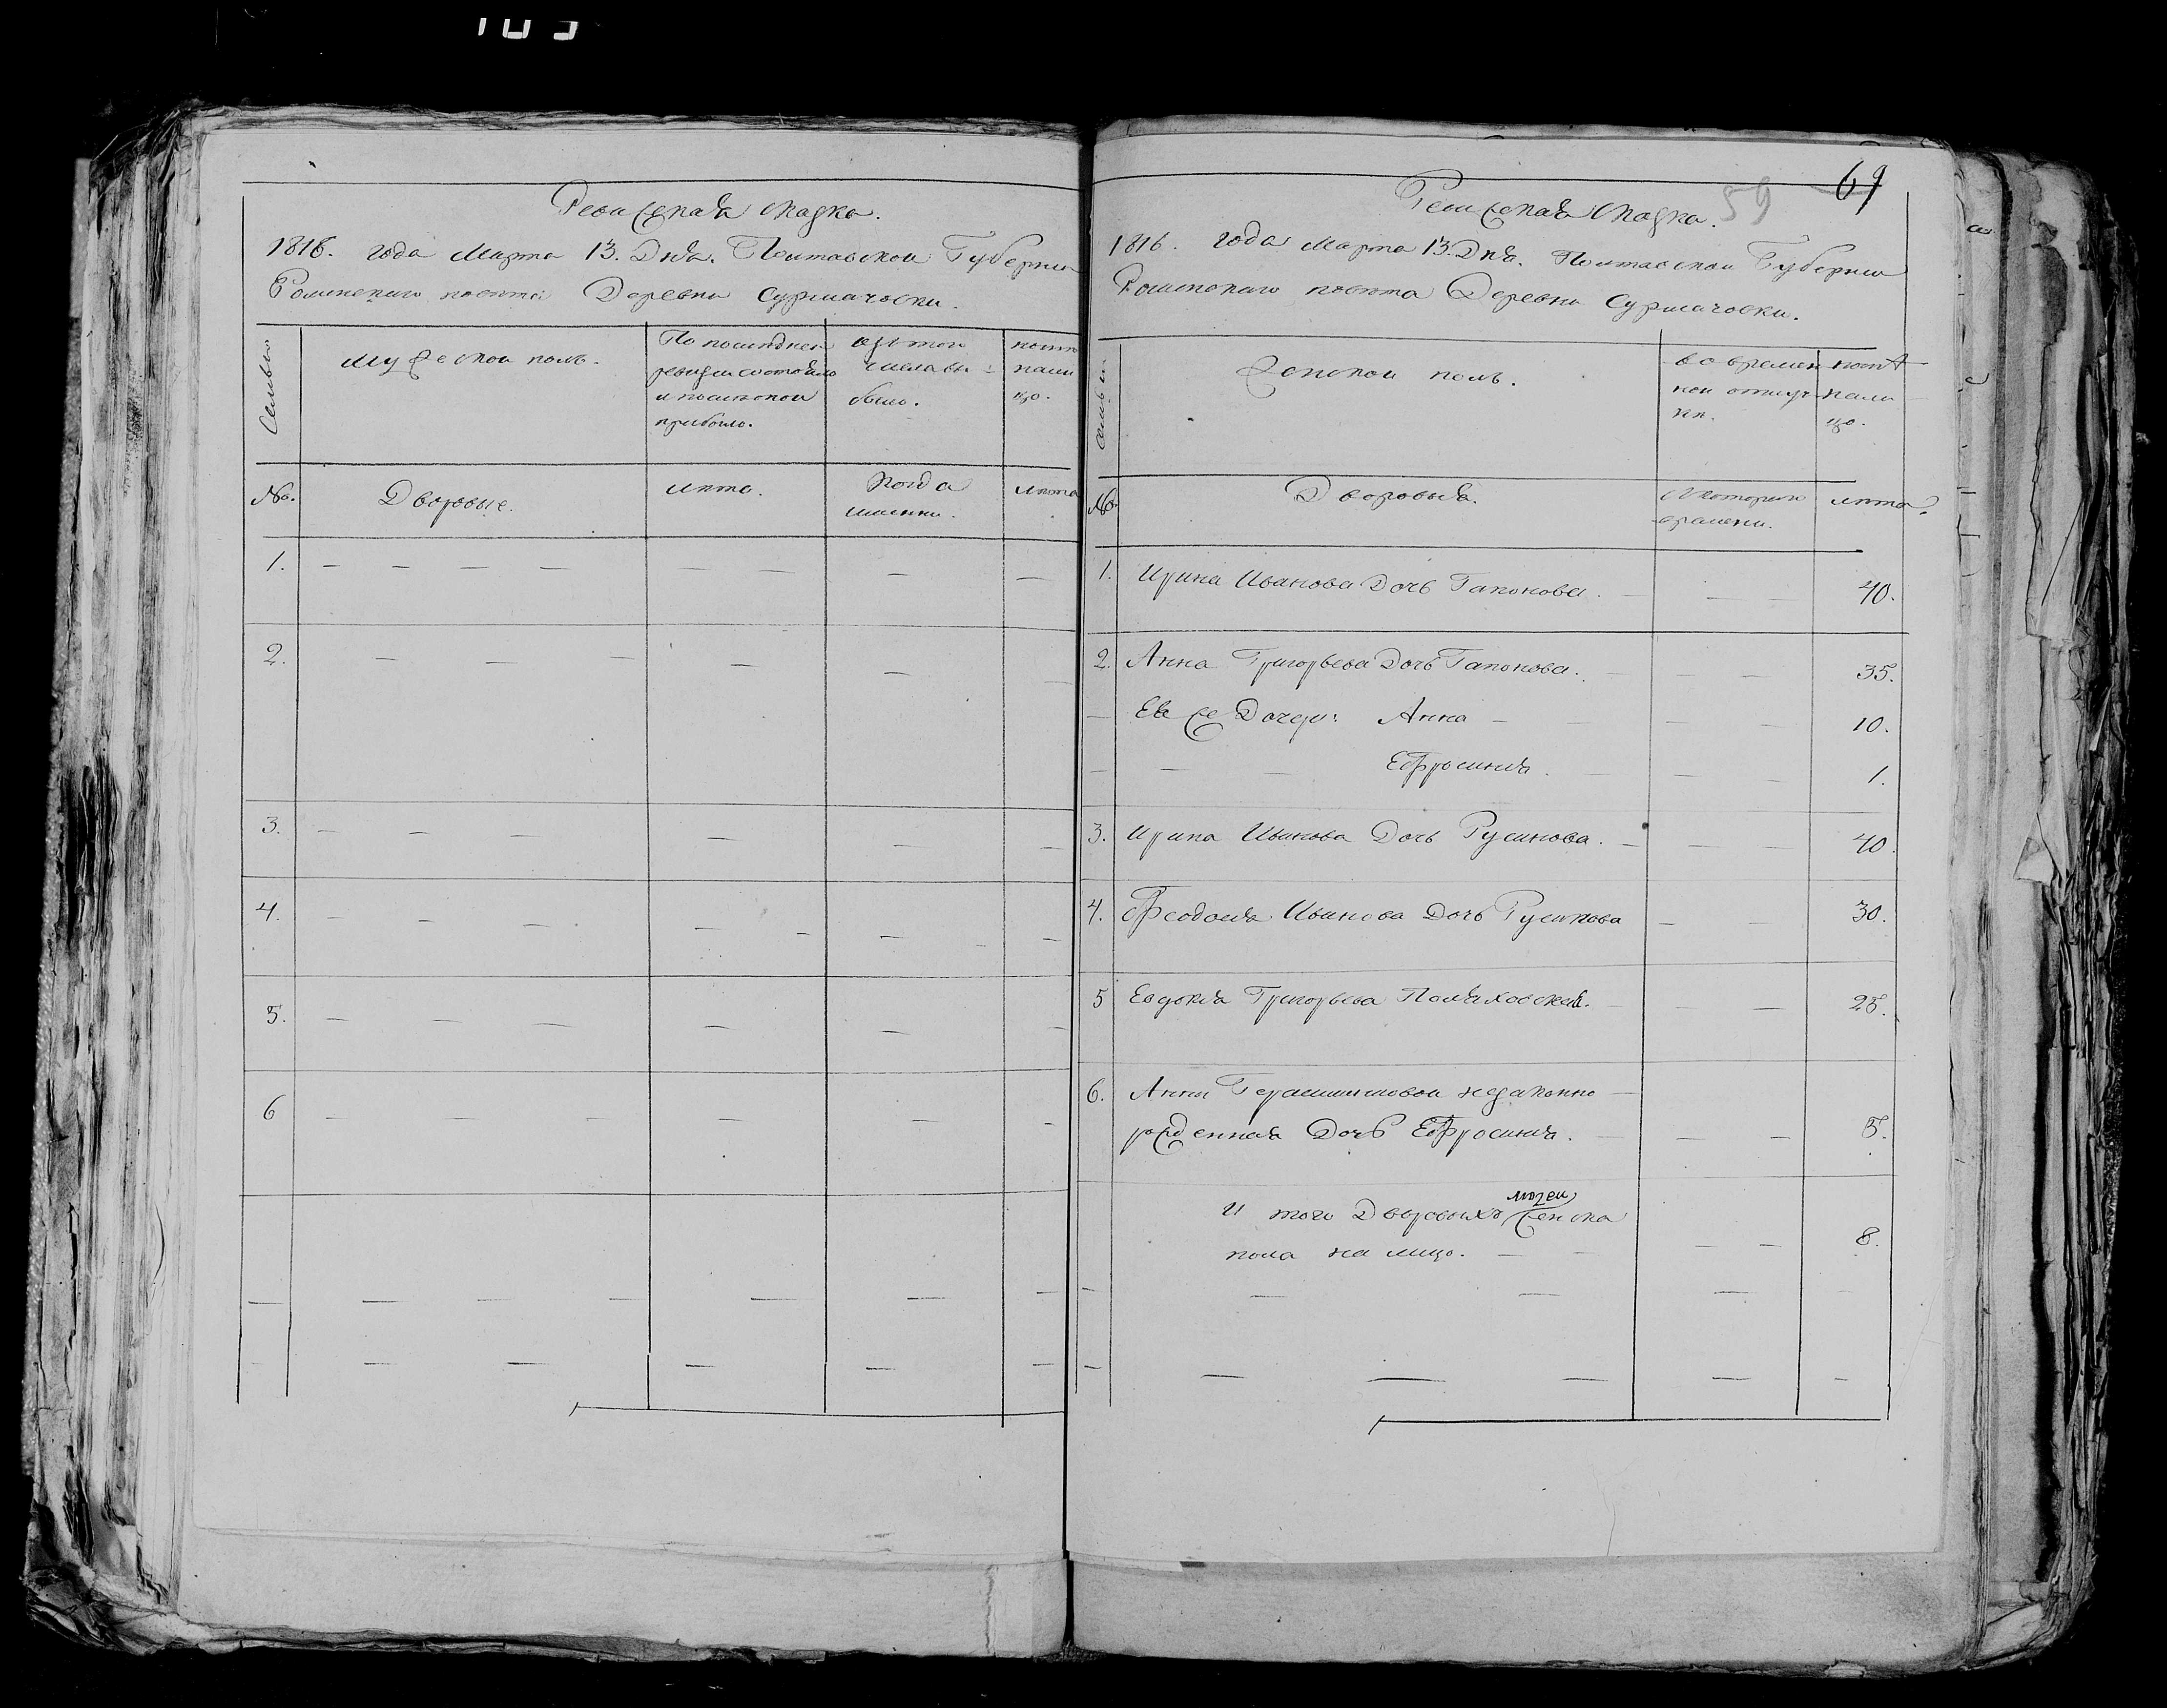 Ревизская сказка.
1816. года Марта 13. Дня. Полтавской Губернии
Роменского повета Деревни Сурмачовки.
Семьи
Мужеской полъ.
По последней
ревизии состояло
и после оной
прибыло.
изъ того
числа вы-
было.
ныне
нали
цо.
№.
Дворовые.
лета.
Когда
именно.
лета
1.
2.
3.
4.
5.
6
69
59
Ревизская сказка.
1816. года Марта 13. Дня. Полтавской Губернии
Роменского повета Деревни Сурмачовки.
Семьи
Женской полъ.
во времен
ной отлуч
ке.
ныне
нали
цо.
№.
Дворовыя.
с которого
времени.
лета.
1. Ирина Иванова Дочь Гапонова. 40.
2. Анна Григорьева Дочь Гапонова. 35.
Ея же Дочери: Анна 10.
Ефросиния. 1.
3. Ирина Иванова Дочь Русинова. 40.
4. Феодосия Иванова Дочь Русинова 30.
5 Евдокия Григорьева Поляховская. 25.
6. Анны Герасимовой незаконно
рожденная Дочь Ефросиния. 5.
И того Дворовыхъ людей женска
пола на лицо. 8.